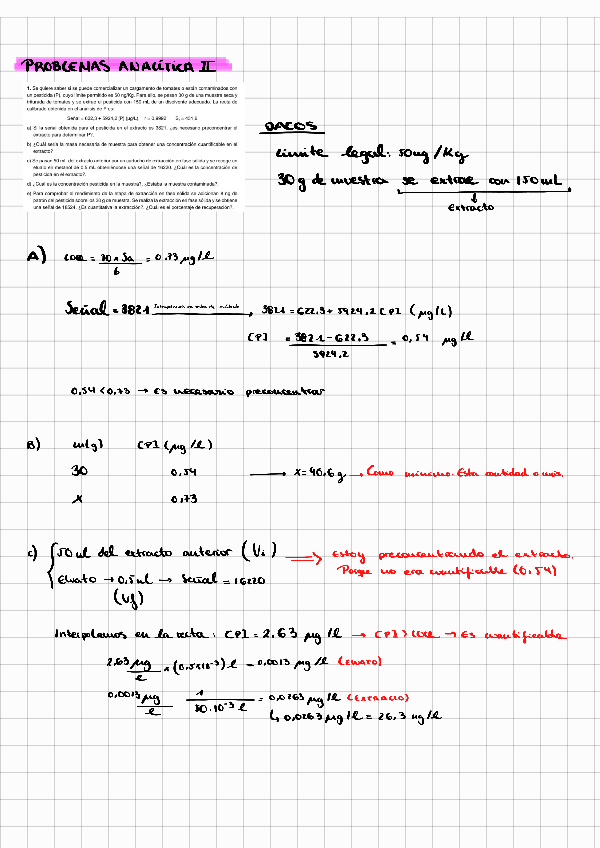 PROBLEMAS ANALÍTICA II
1. Se quiere saber si se puede comercializar un cargamento de tomates o están contaminados con
un pesticida (P), cuyo límite permitido es 50 ng/Kg. Para ello, se pesan 30 g de una muestra seca y
triturada de tomates y se extrae el pesticida con 150 mL de un disolvente adecuado. La recta de
calibrado obtenida en el análisis de P es:
Señal = 622,3 + 5924,2 [P] (µg/L) r = 0,9992
a) Si la señal obtenida para el pesticida en el extracto es 3821, ¿es necesario preconcentrar el
extracto para determinar P?.
b) ¿Cuál sería la masa necesaria de muestra para obtener una concentración cuantificable en el
extracto?
c) Se pasan 50 mL del extracto anterior por un cartucho de extracción en fase sólida y se recoge en
eluato en metanol de 0.5 mL obteniéndose una señal de 16220. ¿Cuál es la concentración de
pesticida en el extracto?.
d) ¿Cuál es la concentración pesticida en la muestra?. ¿Estaba la muestra contaminada?
e) Para comprobar el rendimiento de la etapa de extracción en fase sólida se adicionan ng de
patrón del pesticida sobre los 30 g de muestra. Se realiza la extracción en fase sólida y se obtiene
una señal de 18524. ¿Es cuantitativa la extracción?. ¿Cuál es el porcentaje de recuperación?.
DATOS
Límite legal: 50ng/Kg
30 g de muestra se extrae con 150 mL
extracto
A) LOQ = 10 × Sa / b = 0.73 µg/l
Señal = 3821 Interpolación en recta de calibrado 3821 = 622.3 + 5924.2 [P] (µg/L)
[P] = 3821 - 622.3 / 5924.2 = 0,54 µg/l
0,54 < 0,73 → es necesario preconcentrar
B) m(g) [P] (µg/l)
30 0.54 → x = 40,6 g → Como mínimo. Esta cantidad o más.
x 0.73
c) 50 ml del extracto anterior (Vi) ⇒ Estoy preconcentrando el extracto.
Eluato → 0,5 ml → Señal = 16220 Porque no era cuantificable (0.54)
(Vf)
Interpolamos en la recta: [P] = 2.63 µg/l → [P] > LOQ → Es cuantificable
2,63 µg/l × (0,5×10⁻³) l = 0,0013 µg/l (ELUATO)
0,0013 µg/l 1 / 50·10⁻³ l = 0,0263 µg/l (EXTRACTO)
↳ 0,0263 µg/l = 26,3 ng/l